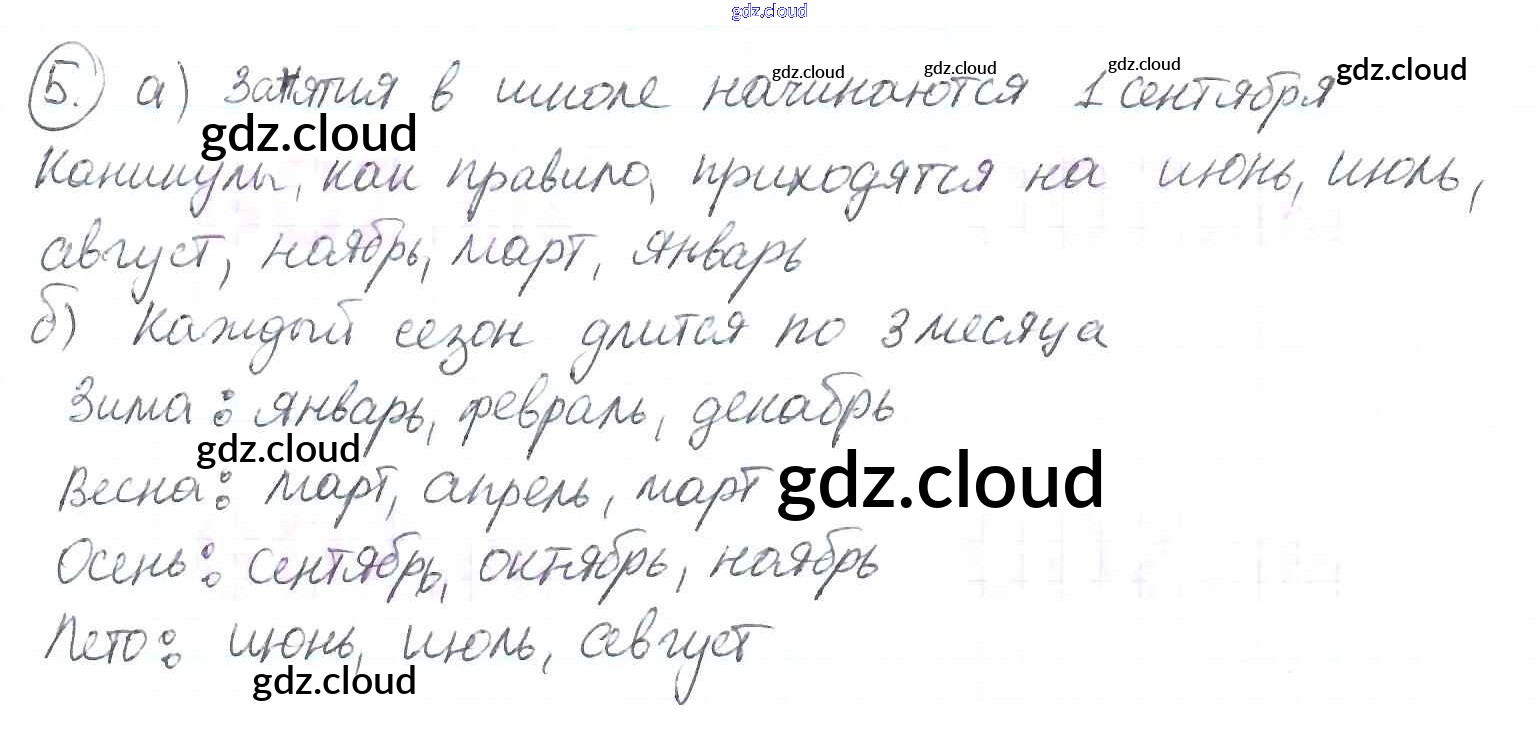 gdz.cloud
5. а) Занятия в школе начинаются 1 сентября
gdz.cloud gdz.cloud gdz.cloud gdz.cloud
gdz.cloud
Каникулы, как правило, приходятся на июнь, июль,
август, ноябрь, март, январь
б) Каждый сезон длится по 3 месяца
Зима: январь, февраль, декабрь
gdz.cloud
Весна: март, апрель, март
gdz.cloud
Осень: сентябрь, октябрь, ноябрь
Лето: июнь, июль, севгуст
gdz.cloud